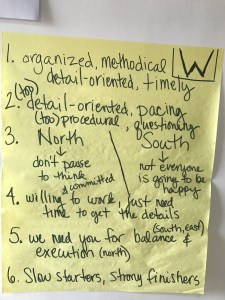 1. organized, methodical W
detail-oriented, timely
(too)
2. detail-oriented, pacing
(too) procedural, questioning
3. North South
don't pause not everyone
to think is going to be
& committed happy
4. willing to work, just need
time to get the details
(south, east)
5. we need you for balance &
execution (north)
6. Slow starters, strong finishers